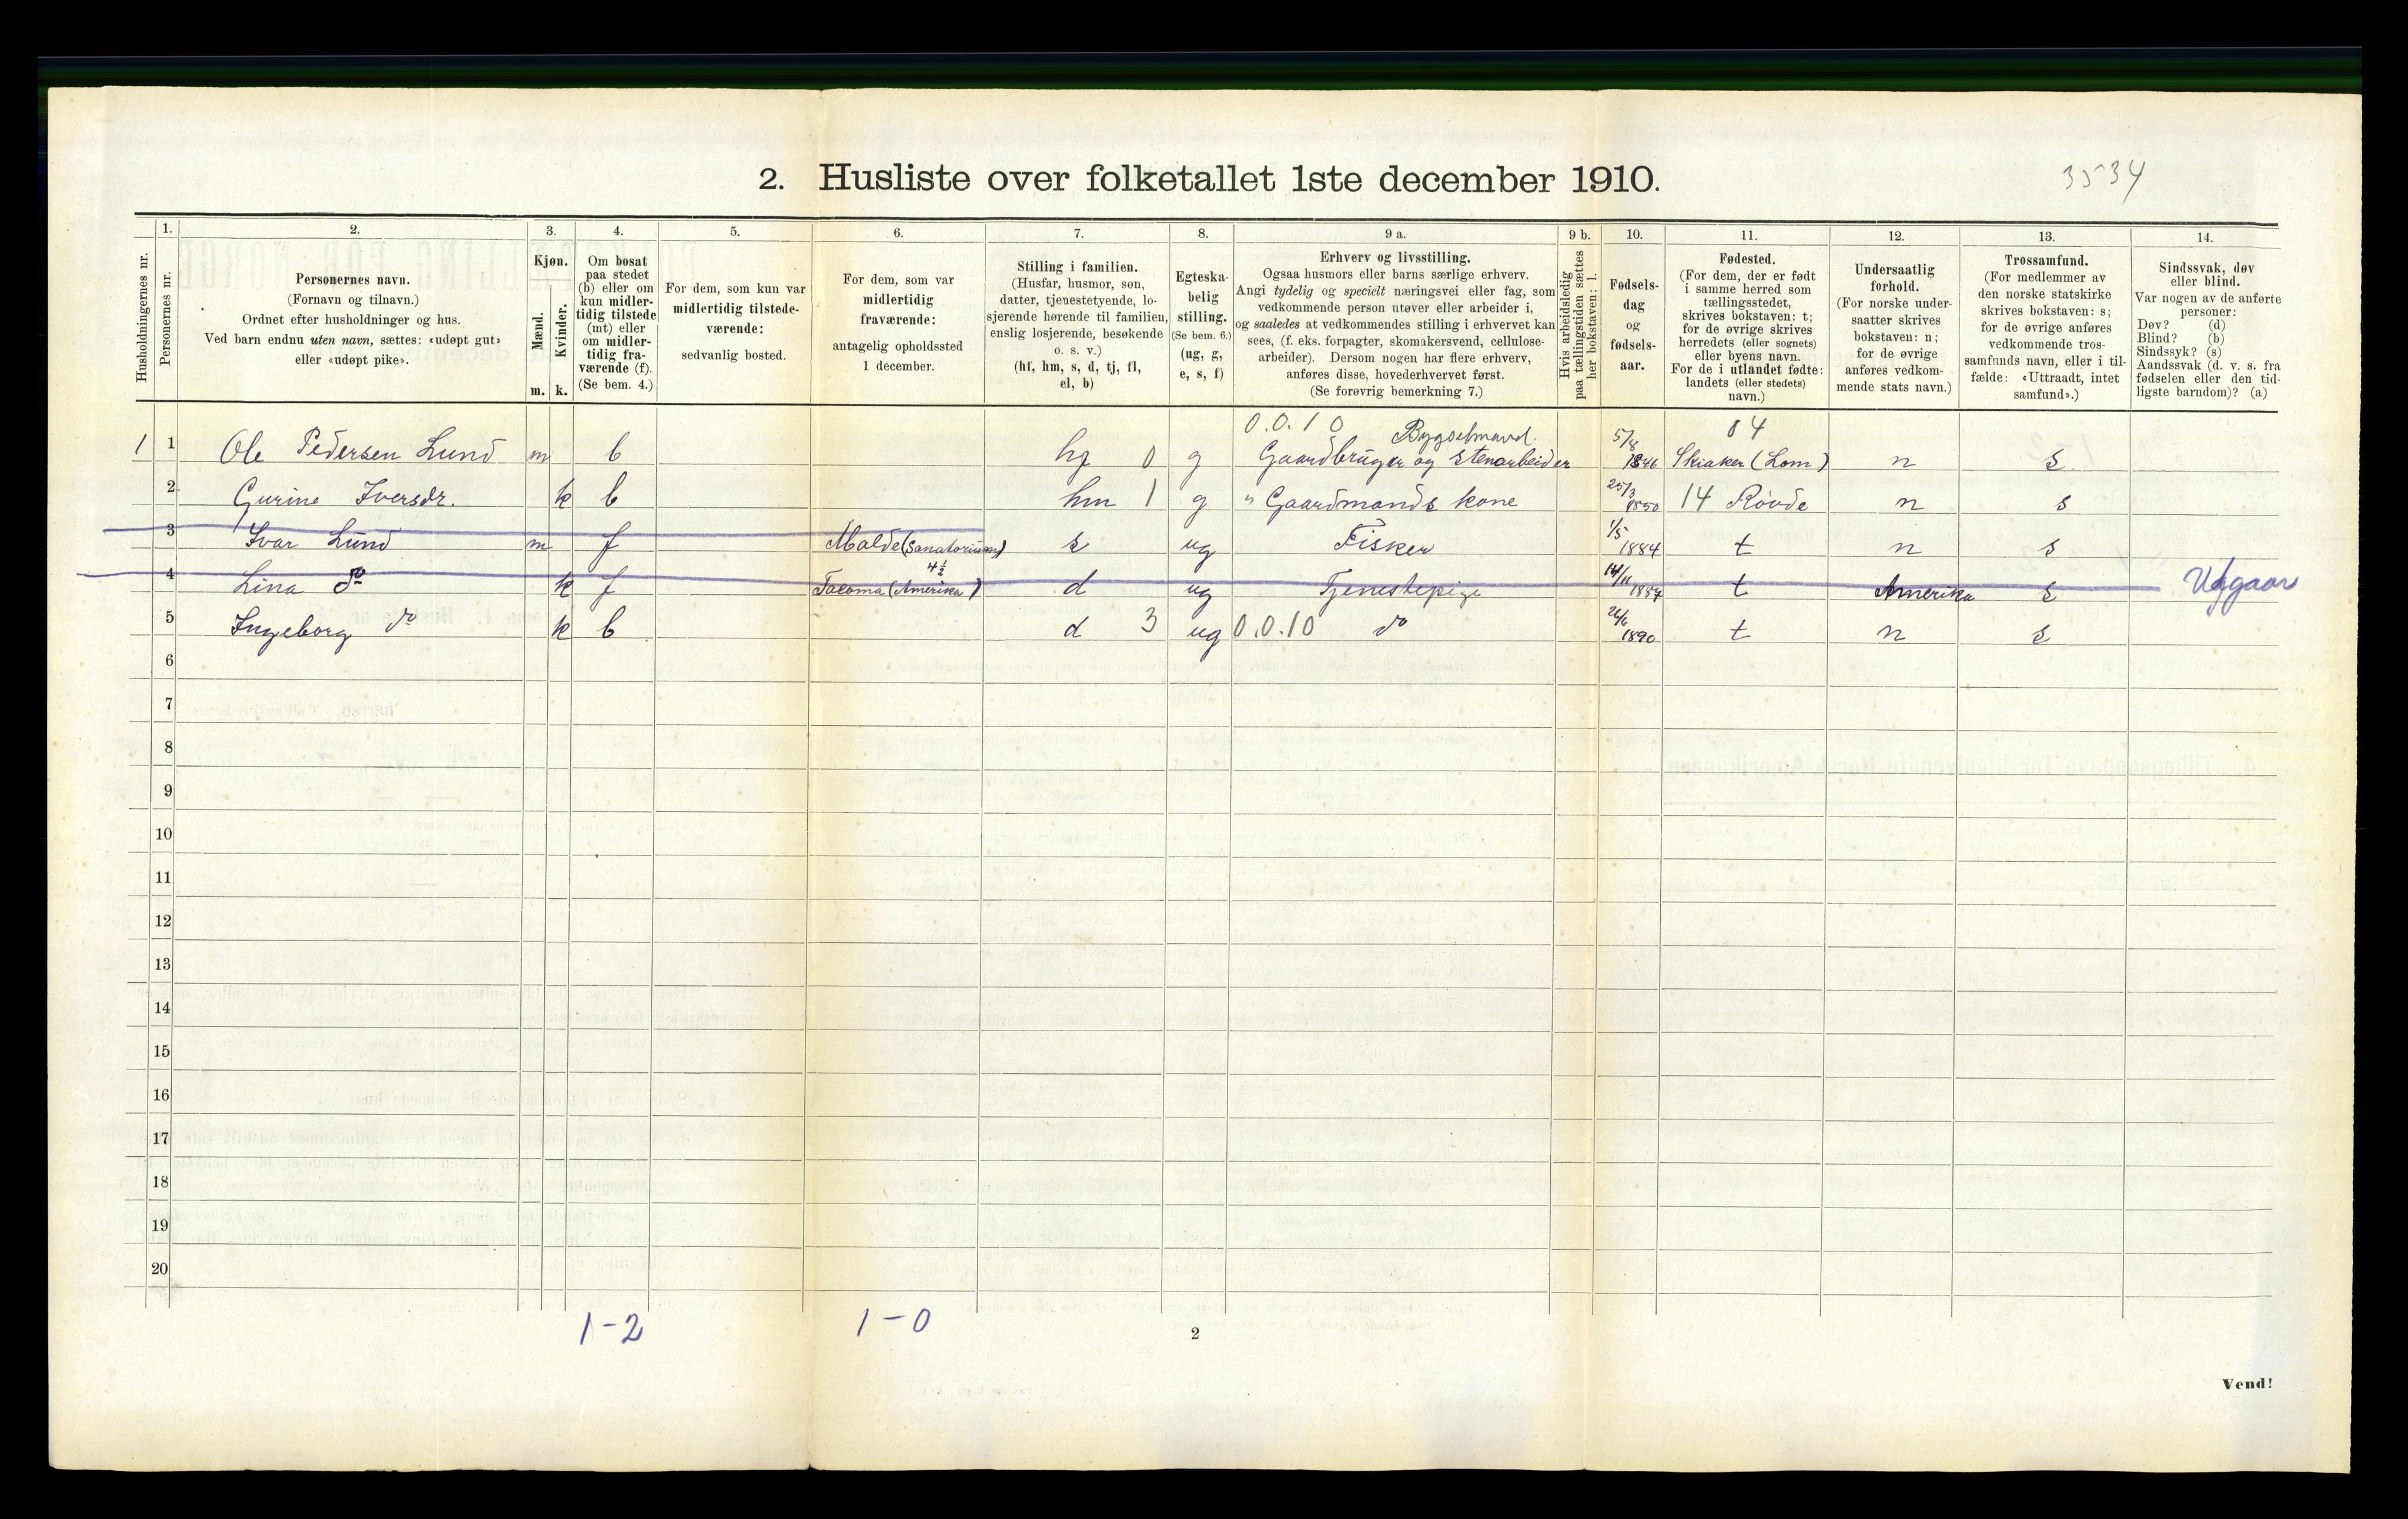 2. Husliste over folketallet 1ste december 1910.
3534
Husholdningernes nr.
1.
Personernes nr.
2.
Personernes navn.
(Fornavn og tilnavn.)
Ordnet efter husholdninger og hus.
Ved barn endnu uten navn, sættes: «udøpt gut»
eller «udøpt pike».
3.
Kjøn.
Mænd.
Kvinder.
m. k.
4.
Om bosat
paa stedet
(b) eller om
kun midler-
tidig tilstede
(mt) eller
om midler-
tidig fra-
værende (f).
(Se bem. 4.)
5.
For dem, som kun var
midlertidig tilstede-
værende:
sedvanlig bosted.
6.
For dem, som var
midlertidig
fraværende:
antagelig opholdssted
1 december.
7.
Stilling i familien.
(Husfar, husmor, søn,
datter, tjenestetyende, lo-
sjerende hørende til familien,
enslig losjerende, besøkende
o. s. v.)
(hf, hm, s, d, tj, fl,
el, b)
8.
Egteska-
belig
stilling.
(Se bem. 6.)
(ug, g,
e, s, f)
9 a.
Erhverv og livsstilling.
Ogsaa husmors eller barns særlige erhverv.
Angi tydelig og specielt næringsvei eller fag, som
vedkommende person utøver eller arbeider i,
og saaledes at vedkommendes stilling i erhvervet kan
sees, (f. eks. forpagter, skomakersvend, cellulose-
arbeider). Dersom nogen har flere erhverv,
anføres disse, hovederhvervet først.
(Se forøvrig bemerkning 7.)
9 b.
Hvis arbeidsledig
paa tællingstiden sættes
her bokstaven: l.
10.
Fødsels-
dag
og
fødsels-
aar.
11.
Fødested.
(For dem, der er født
i samme herred som
tællingsstedet,
skrives bokstaven: t;
for de øvrige skrives
herredets (eller sognets)
eller byens navn.
For de i utlandet fødte:
landets (eller stedets)
navn.)
12.
Undersaatlig
forhold.
(For norske under-
saatter skrives
bokstaven: n;
for de øvrige
anføres vedkom-
mende stats navn.)
13.
Trossamfund.
(For medlemmer av
den norske statskirke
skrives bokstaven: s;
for de øvrige anføres
vedkommende tros-
samfunds navn, eller i til-
fælde: «Uttraadt, intet
samfund».)
14.
Sindssvak, døv
eller blind.
Var nogen av de anførte
personer:
Døv? (d)
Blind? (b)
Sindssyk? (s)
Aandssvak (d. v. s. fra
fødselen eller den tid-
ligste barndom)? (a)
0.0.10 Bygselmand. 84
1 1 Ole Pedersen Lund m b hf 0 g Gaardbruger og Stenarbeider 5/8 1846 Skiaker (Lom) n s
2 Gurine Iversdr. k b hm 1 g " Gaardmands kone 25/3 1850 14 Røvde n s
3 Ivar Lund m f Molde (Sanatorium) s ug Fisker 1/5 1884 t n s
4 Lina do k f Tacoma (Amerika) 4½ d ug Tjenestepige 14/11 1887 t Amerika s Udgaar
5 Ingeborg do k b d 3 ug 0.0.10 do 26/6 1890 t n s
6
7
8
9
10
11
12
13
14
15
16
17
18
19
20
1-2 1-0
2
Vend!